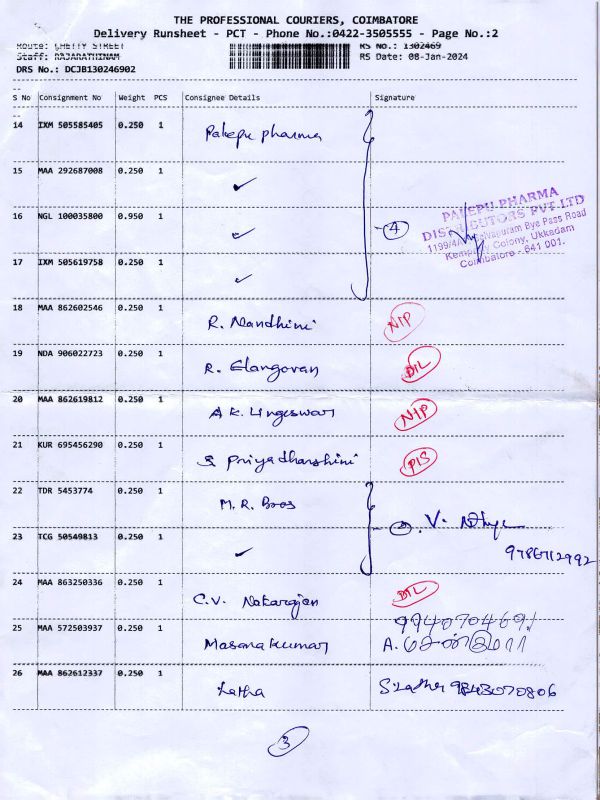 THE PROFESSIONAL COURIERS, COIMBATORE
Delivery Runsheet - PCT - Phone No.:0422-3505555 - Page No.:2
Route: CHETTY STREET RS No.: 1302469
Staff: RAJARATHINAM RS Date: 08-Jan-2024
DRS No.: DCJB130246902
S No Consignment No Weight PCS Consignee Details Signature
14 IXM 505585405 0.250 1 Pakepu pharma
15 MAA 292687008 0.250 1 ✓
16 NGL 100035800 0.950 1 ✓ 4
17 IXM 505619758 0.250 1 ✓
PAKEPU PHARMA
DISTRIBUTORS PVT.LTD
1199/4A, Selvapuram Bye Pass Road
Kempatty Colony, Ukkadam
Coimbatore - 641 001.
18 MAA 862602546 0.250 1 R. Nandhini NIP
19 NDA 906022723 0.250 1 R. Elangovan DIL
20 MAA 862619812 0.250 1 A K. Lingeswar NIP
21 KUR 695456290 0.250 1 S Priyadharshini PIS
22 TDR 5453774 0.250 1 M. R. Bros
23 TCG 50549813 0.250 1 ✓ 2 V.
9786712992
24 MAA 863250336 0.250 1 C.V. Natarajan DIL
994070469
25 MAA 572503937 0.250 1 Masanakumar A.
26 MAA 862612337 0.250 1 Latha S. Latha 9843070806
3